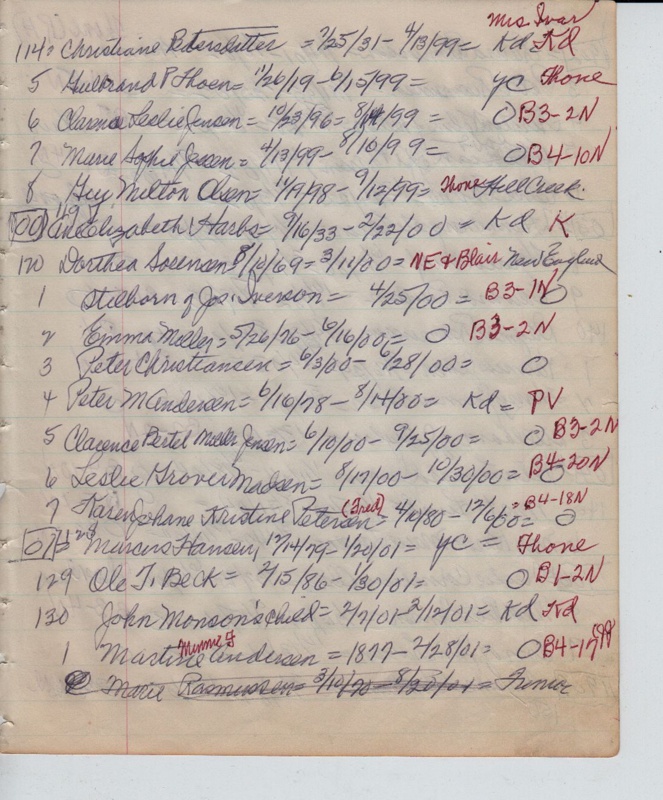 Mrs. Ivar
114 = Christiane = 7/25/31 - 4/13/99 = Kd Kd
5 P Thoen = 11/26/19 - 6/15/99 = yc Thone
6 Clarence Leslie Jensen = 10/23/96 = 8/14/99 O B3-2N
7 Marie Sophie Jessen = 4/13/99 - 8/16/99 = O B4-10N
8 Guy Milton Olsen = 11/9/98 - 9/12/99 = Thone Hill Creek.
00 119 Elizabeth Harbs = 9/16/33 - 2/22/00 = Kd K
120 Dorthea Sorensen = 8/10/69 = 3/11/00 = NE & Blair New England
1 Stilborn of Jos. Iverson = 4/25/00 = B3-1N O
2 Emma Moller = 5/26/76 - 6/16/00 = O B3-2N
3 Peter Christiansen = 6/3/00 - 6/28/00 = O
4 Peter M Andersen = 6/16/78 - 8/14/00 = Kd = PV
5 Clarence Bertel Moller Jensen = 6/10/00 - 9/25/00 = O B3-2N
6 Leslie Grover Madsen = 8/17/00 - 10/30/00 = B4-20N O
7 Karen Johane Kristine Petersen (Fred) = 4/10/80 - 12/6/00 = B4-18N O
01 = 128 Marcus Hansen, 12/14/79 - 1/20/01 = yc = Thone
129 Ole T. Beck = 2/15/86 - 1/30/01 = O B1-2N
130 John Monson's child = 2/7/01 - 2/12/01 = Kd Kd
1 Martine Minnie F Andersen = 1877 - 2/28/01 = O B4-17
Marie Rasmussen = 3/10/70 - 8/20/01 = Junior